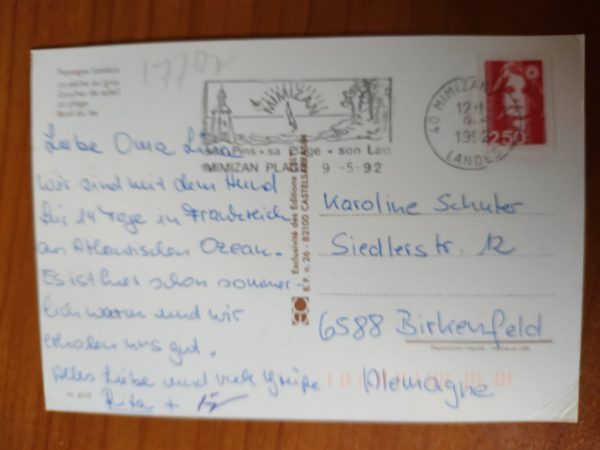 17/92
Paysages Landais
La pêche au gros
Coucher de soleil
La plage
Bord du lac
MIMIZAN
Pins • sa Plage • son Lac
MIMIZAN PLAGE 9 -5-92
40 MIMIZAN
12H
9-
1992
LANDES
2,50
Liebe Oma
wir sind mit dem Hund
für 14 Tage in Frankreich
am Atlantischen Ozean.
Es ist hier schon sommer-
lich warm und wir
erholen uns gut.
Alles Liebe und viele Grüße
Rita +
Exclusivité des Editions
B.P. n. 26 - 82100 CASTELSARRASIN
Karoline Schuter
Siedlerstr. 12
6588 Birkenfeld
Alemagne